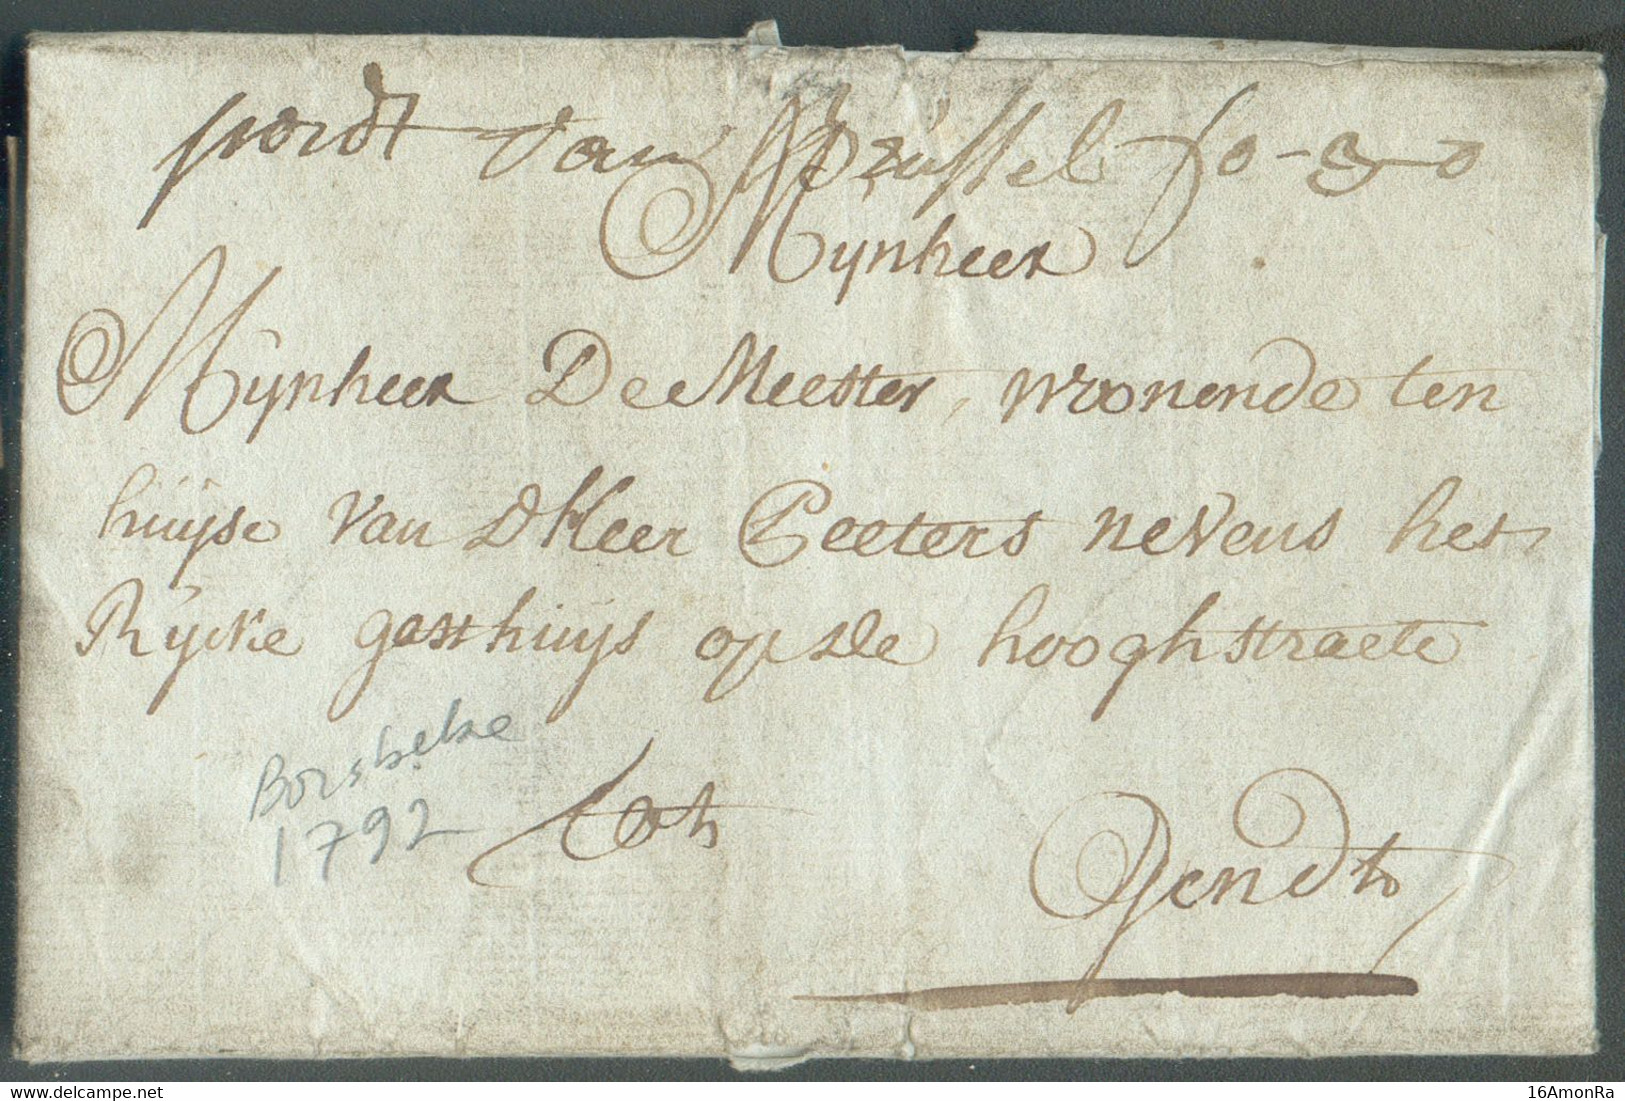 pordt van Brüssel fo-3-0
Mynheer
Mynheer De Meester, woonende ten
huijse van d'Heer Peeters nevens het
Rycke gasthuijs op de hooghstraete
Borsbeke
1792
tot
Gendt
16AmonRa